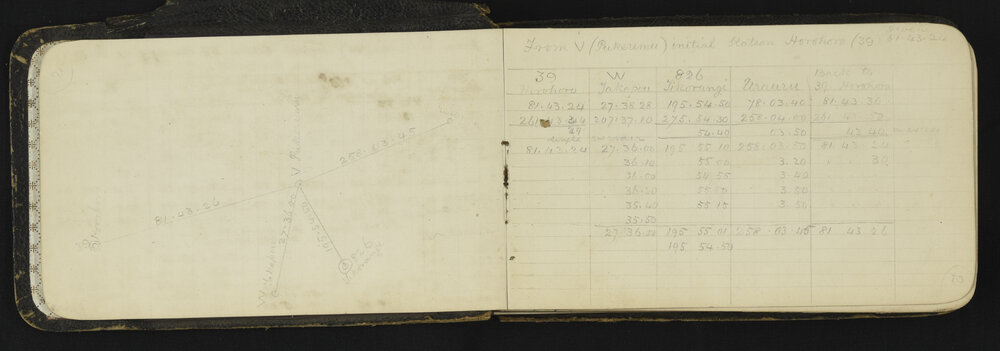 258.03.45
V Pukerimu
81.43.26
39
Horohoro
27.36.00
W Takapau
195.54.50
826
From V (Pukerimu) initial Station Horohoro (39) 81.43.24
39 W 826 Back to
Horohoro Takapau Tikorangi Uraura 39 Horohoro
81.43.24 27.38.28 195.54.50 78.03.40 81.43.30
261.43.34 207.37.10 275.54.30 258.04.00 261
29 54.40 03.50 43.40
81.43.24 27.36.00 195 55 10 258.03.50 81 43 24
36.10 55.00 3.20 30
36.00 54 55 3.40
36.20 55 00 3.50
35.40 55 15 3.50
35.50
27.36.00 195 55 01 258.03.45 81 43 26
195 54.50